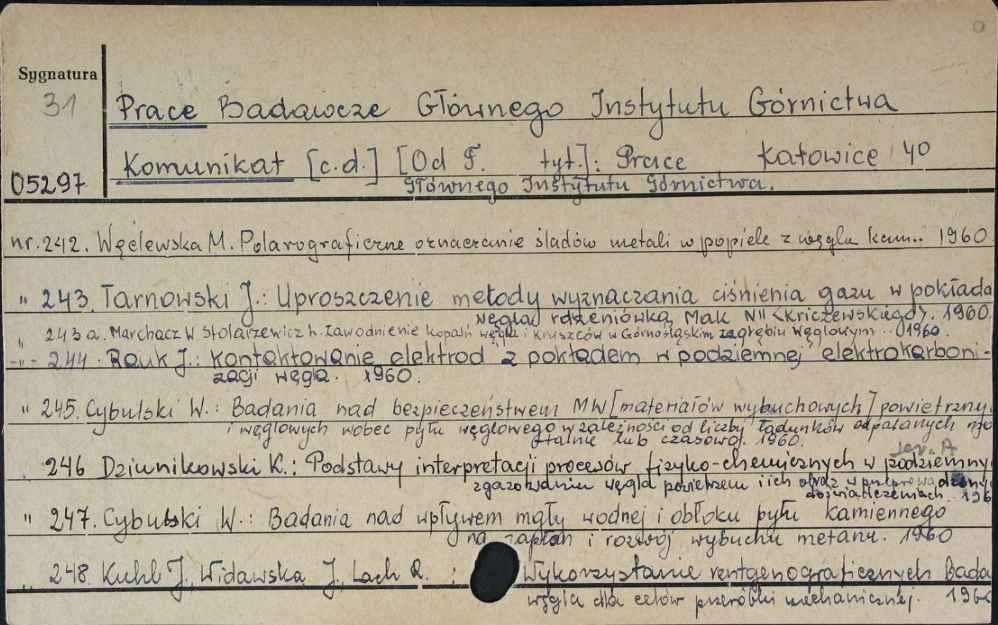 Sygnatura
31
Prace Badawcze Głównego Instytutu Górnictwa
Komunikat [c.d.] [Od F. tyt.]: Prace Katowice 40
05297
Głównego Instytutu Górnictwa.
nr. 242. Węcławska M. Polarograficzne oznaczanie śladów metali w popiele z węgla kam.. 1960
" 243. Tarnowski J.: Uproszczenie metody wyznaczania ciśnienia gazu w pokłada
węgla rdzeniówką Mak NII <Kriczewskiego>. 1960.
" 243a. Marchacz W Stolarzewicz h. Zawodnienie kopalń węgla i kruszców w Górnośląskim zagłębiu węglowym .. 1960.
-"- 244. Rauk J.: Kontaktowanie elektrod z pokładem w podziemnej elektrokarboni-
zacji węgla. 1960.
" 245. Cybulski W.: Badania nad bezpieczeństwem MW [materiałów wybuchowych] powietrzny
i węglowych wobec pyłu węglowego w zależności od liczby ładunków odpalanych
lub czasowo. 1960.
ser. A
" 246 Dziunikowski K.: Podstawy interpretacji procesów fizyko-chemicznych w podziemny
zgazowaniu węgla powietrzem i ich obraz w
doświadczeniach. 196
" 247. Cybulski W.: Badania nad wpływem mgły wodnej i obłoku pyłu kamiennego
na zapłon i rozwój wybuchu metanu. 1960
" 248. Kuhl J., Widawska J., Lach R. : Wykorzystanie rentgenograficznych Bada
węgla dla celów przeróbki mechanicznej. 196